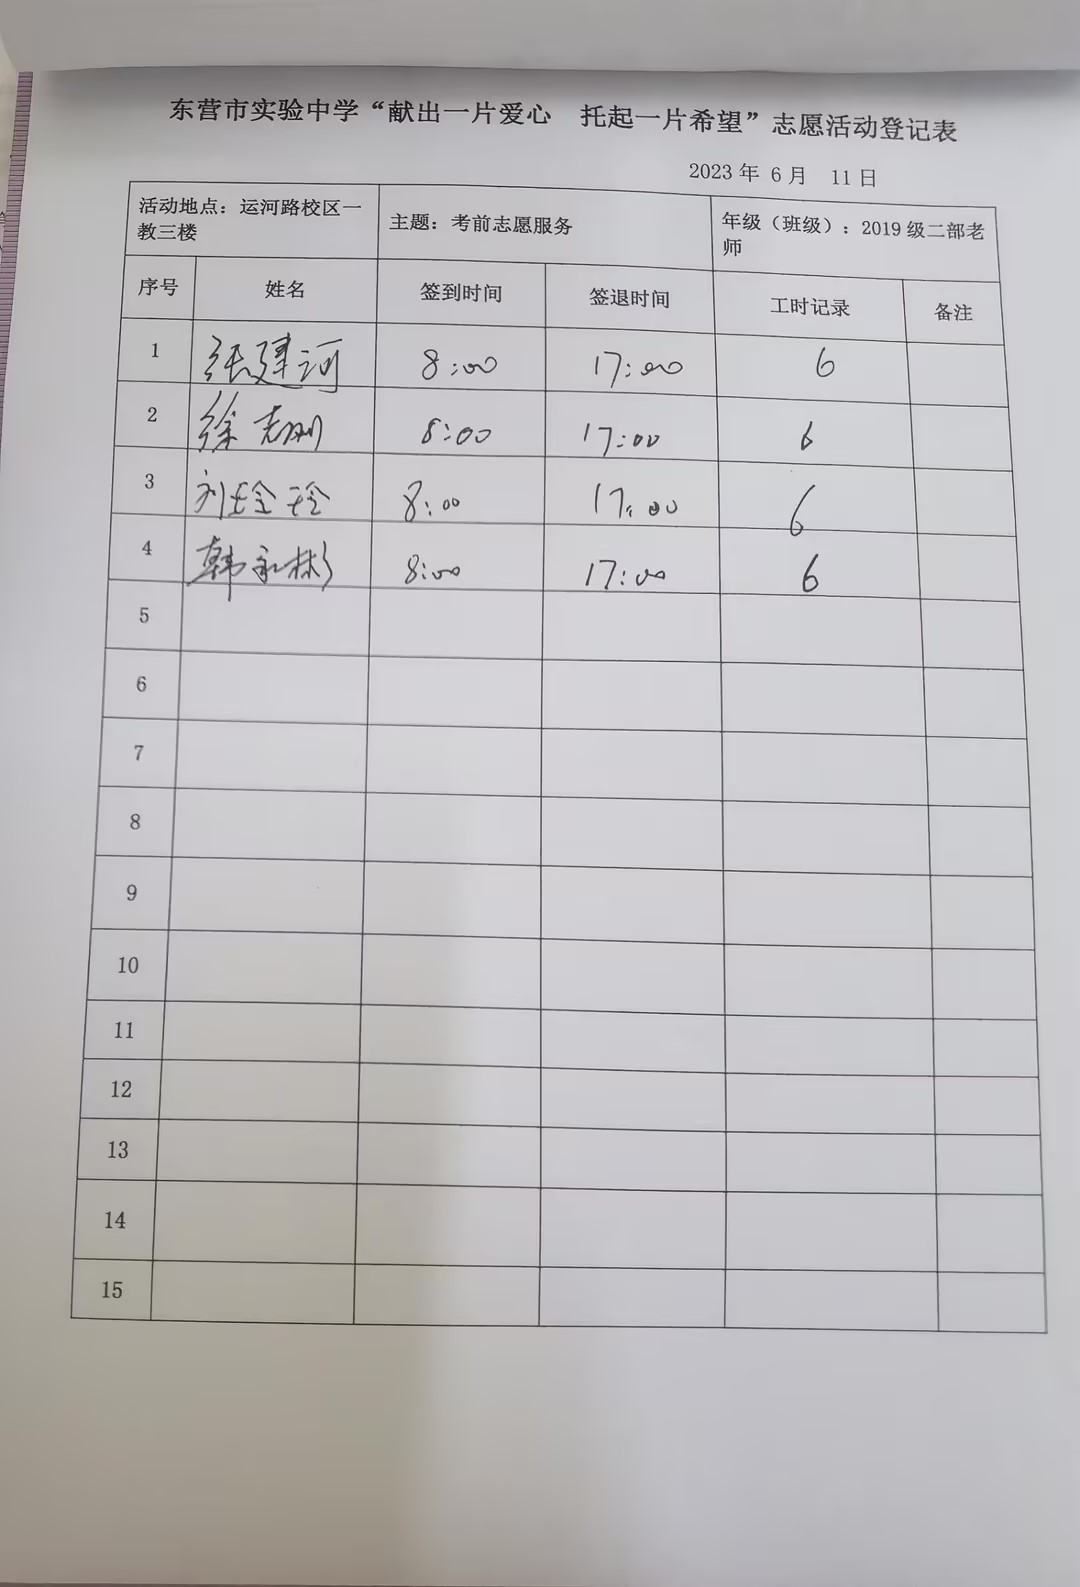 东营市实验中学“献出一片爱心 托起一片希望”志愿活动登记表
2023 年 6 月 11 日
活动地点：运河路校区一
教三楼
主题：考前志愿服务
年级（班级）：2019 级二部老
师
序号 姓名 签到时间 签退时间 工时记录 备注
1 张建河 8:00 17:00 6
2 徐志刚 8:00 17:00 6
3 刘玲玲 8:00 17:00 6
4 韩永彬 8:00 17:00 6
5
6
7
8
9
10
11
12
13
14
15